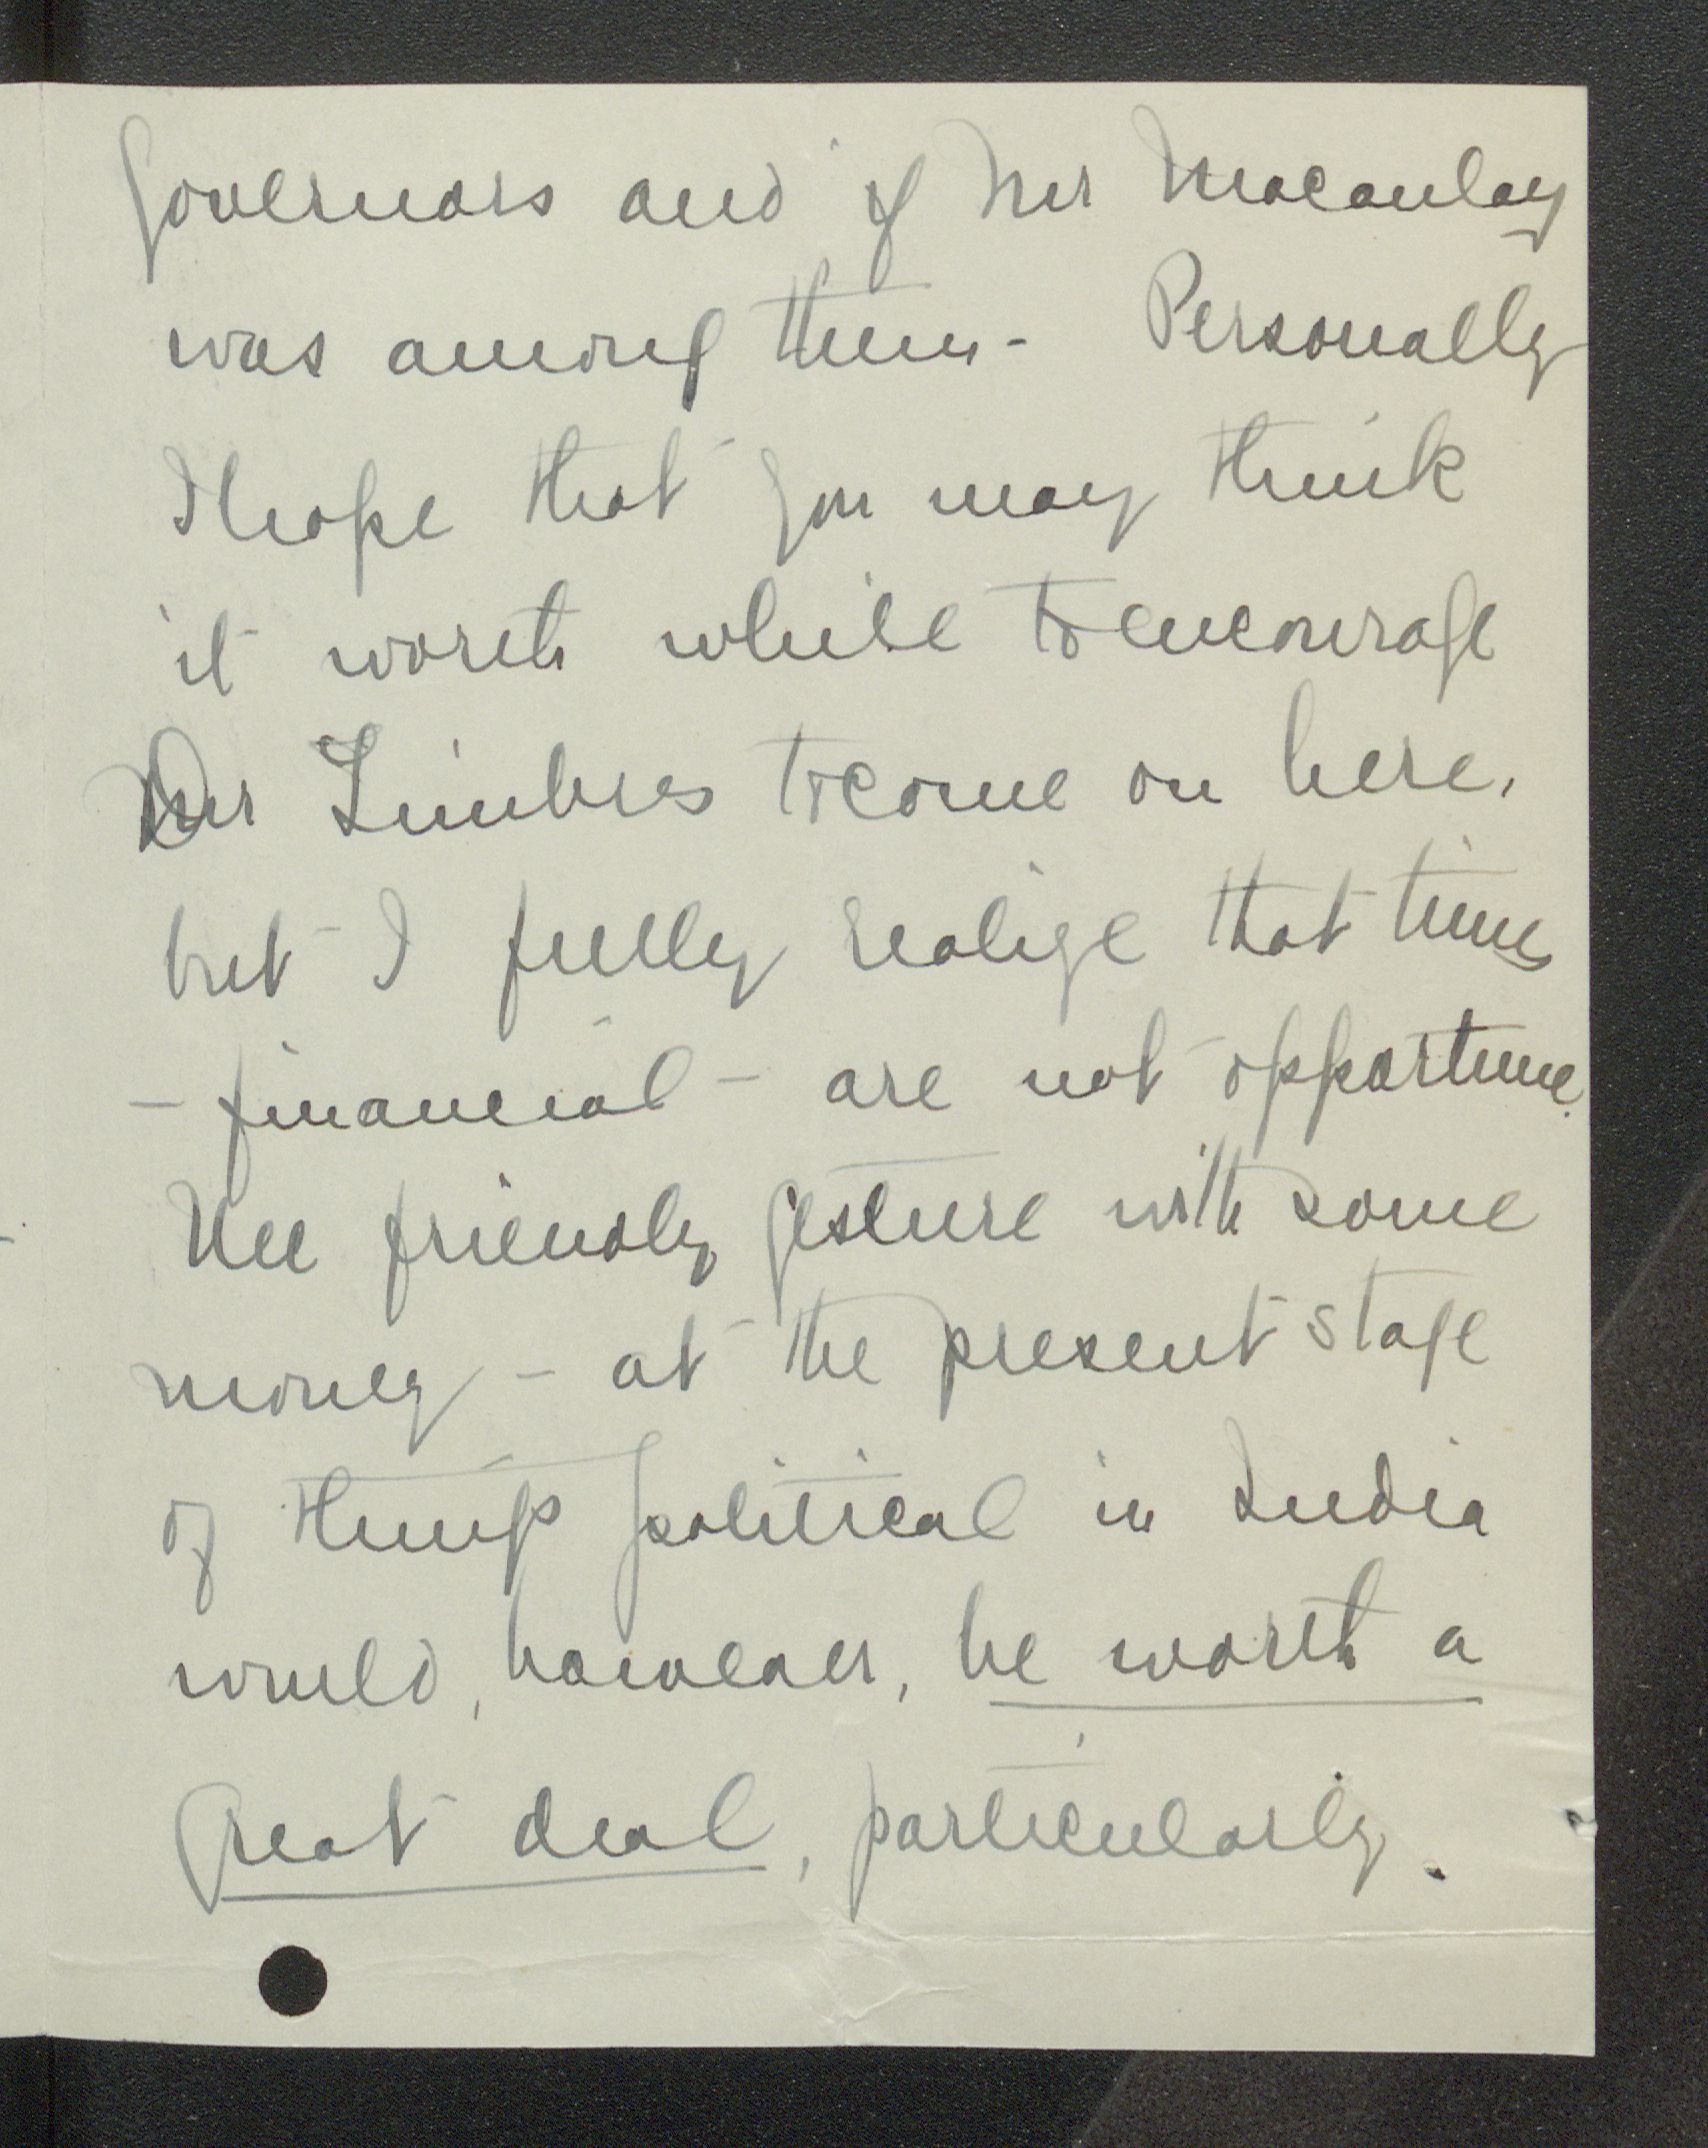 Governors and if Mr Macaulay
was among them - Personally
I hope that you may think
it worth while to encourage
Dr Timbres to come on here,
but I fully realize that times
- financial - are not opportune.
The friendly gesture with some
money - at the present stage
of things political in India
would, however, be worth a
great deal, particularly.